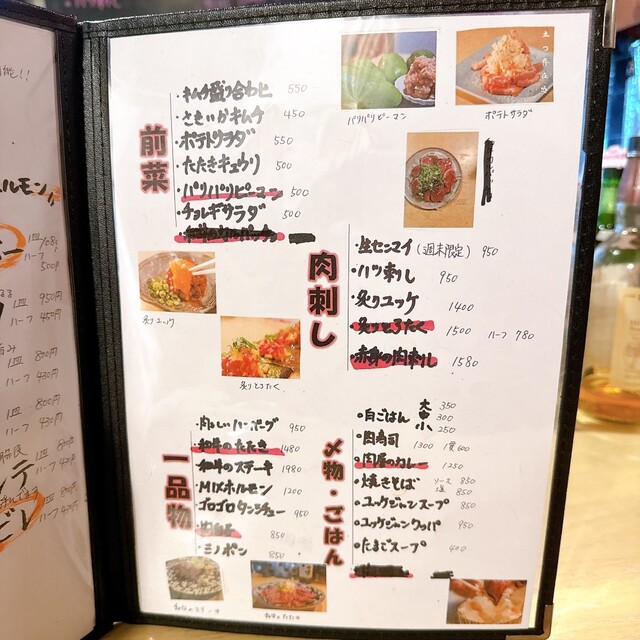 前菜
・キムチ盛り合わせ 550
・さきいかキムチ 450
・ポテトサラダ 550
・たたきキュウリ 500
・パリパリピーマン 500
・チョレギサラダ 500
パリパリピーマン
ポテトサラダ
肉刺し
・生センマイ(週末限定) 950
・ハツ刺し 950
・炙りユッケ 1400
・炙りとろたく 1500 ハーフ 780
・赤身の肉刺し 1580
炙りユッケ
炙りとろたく
一品物
・肉々しいハンバーグ 950
・和牛のたたき 1480
・和牛のステーキ 1980
・MIXホルモン 1200
・ゴロゴロタンシチュー 950
850
・ミノポン 850
和牛のステーキ
和牛のたたき
〆物・ごはん
・白ごはん 大 350
中 300
小 250
・肉寿司 1300 1貫600
・肉屋のカレー 1250
・焼きそば ソース 850
塩 850
・ユッケジャンスープ 850
・ユッケジャンクッパ 950
・たまごスープ 400
ホルモン
1皿
ハーフ 500円
1皿 950円
ハーフ 450円
1皿 800円
ハーフ 430円
1皿 800円
ハーフ 430円